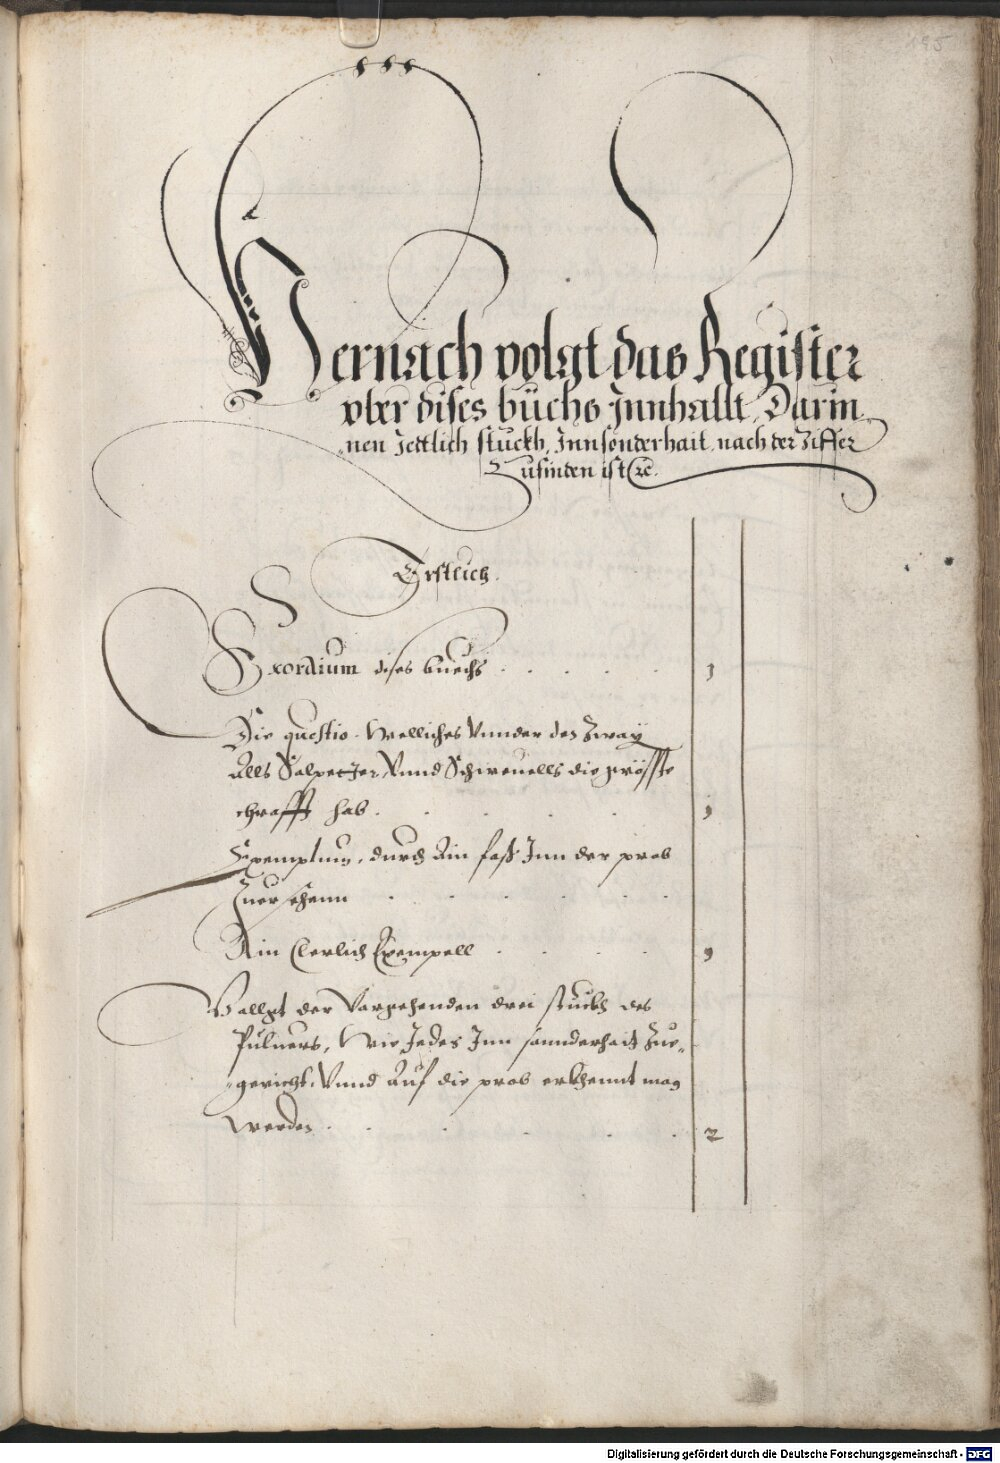 195
Hernach volgt das Register
vber dises büchs Innhallt, Darin
nen Jedtlich stuckh, Innsonderhait, nach der Ziffer
Zufinden ist
Erstlich.
Exordium dises buechs . . . . . 1
Die questio. Welliches Vnnder den Zway
Alls Salpetter, Vnnd Schweuells die gröste
chrafft hab . . . . . 1
Exemplum, durch Ain fass Inn der prob
Zuersehenn . . . . . .
Ain Clerlich Exempell . . . . 1
Vollgt der Vorgehenden drei stuckh des
Puluers, Wie Jedes Inn sonnderhait Zue-
gericht, Vnnd Auf die prob erkhennt mag
werden . . . . . . 2
Digitalisierung gefördert durch die Deutsche Forschungsgemeinschaft - DFG